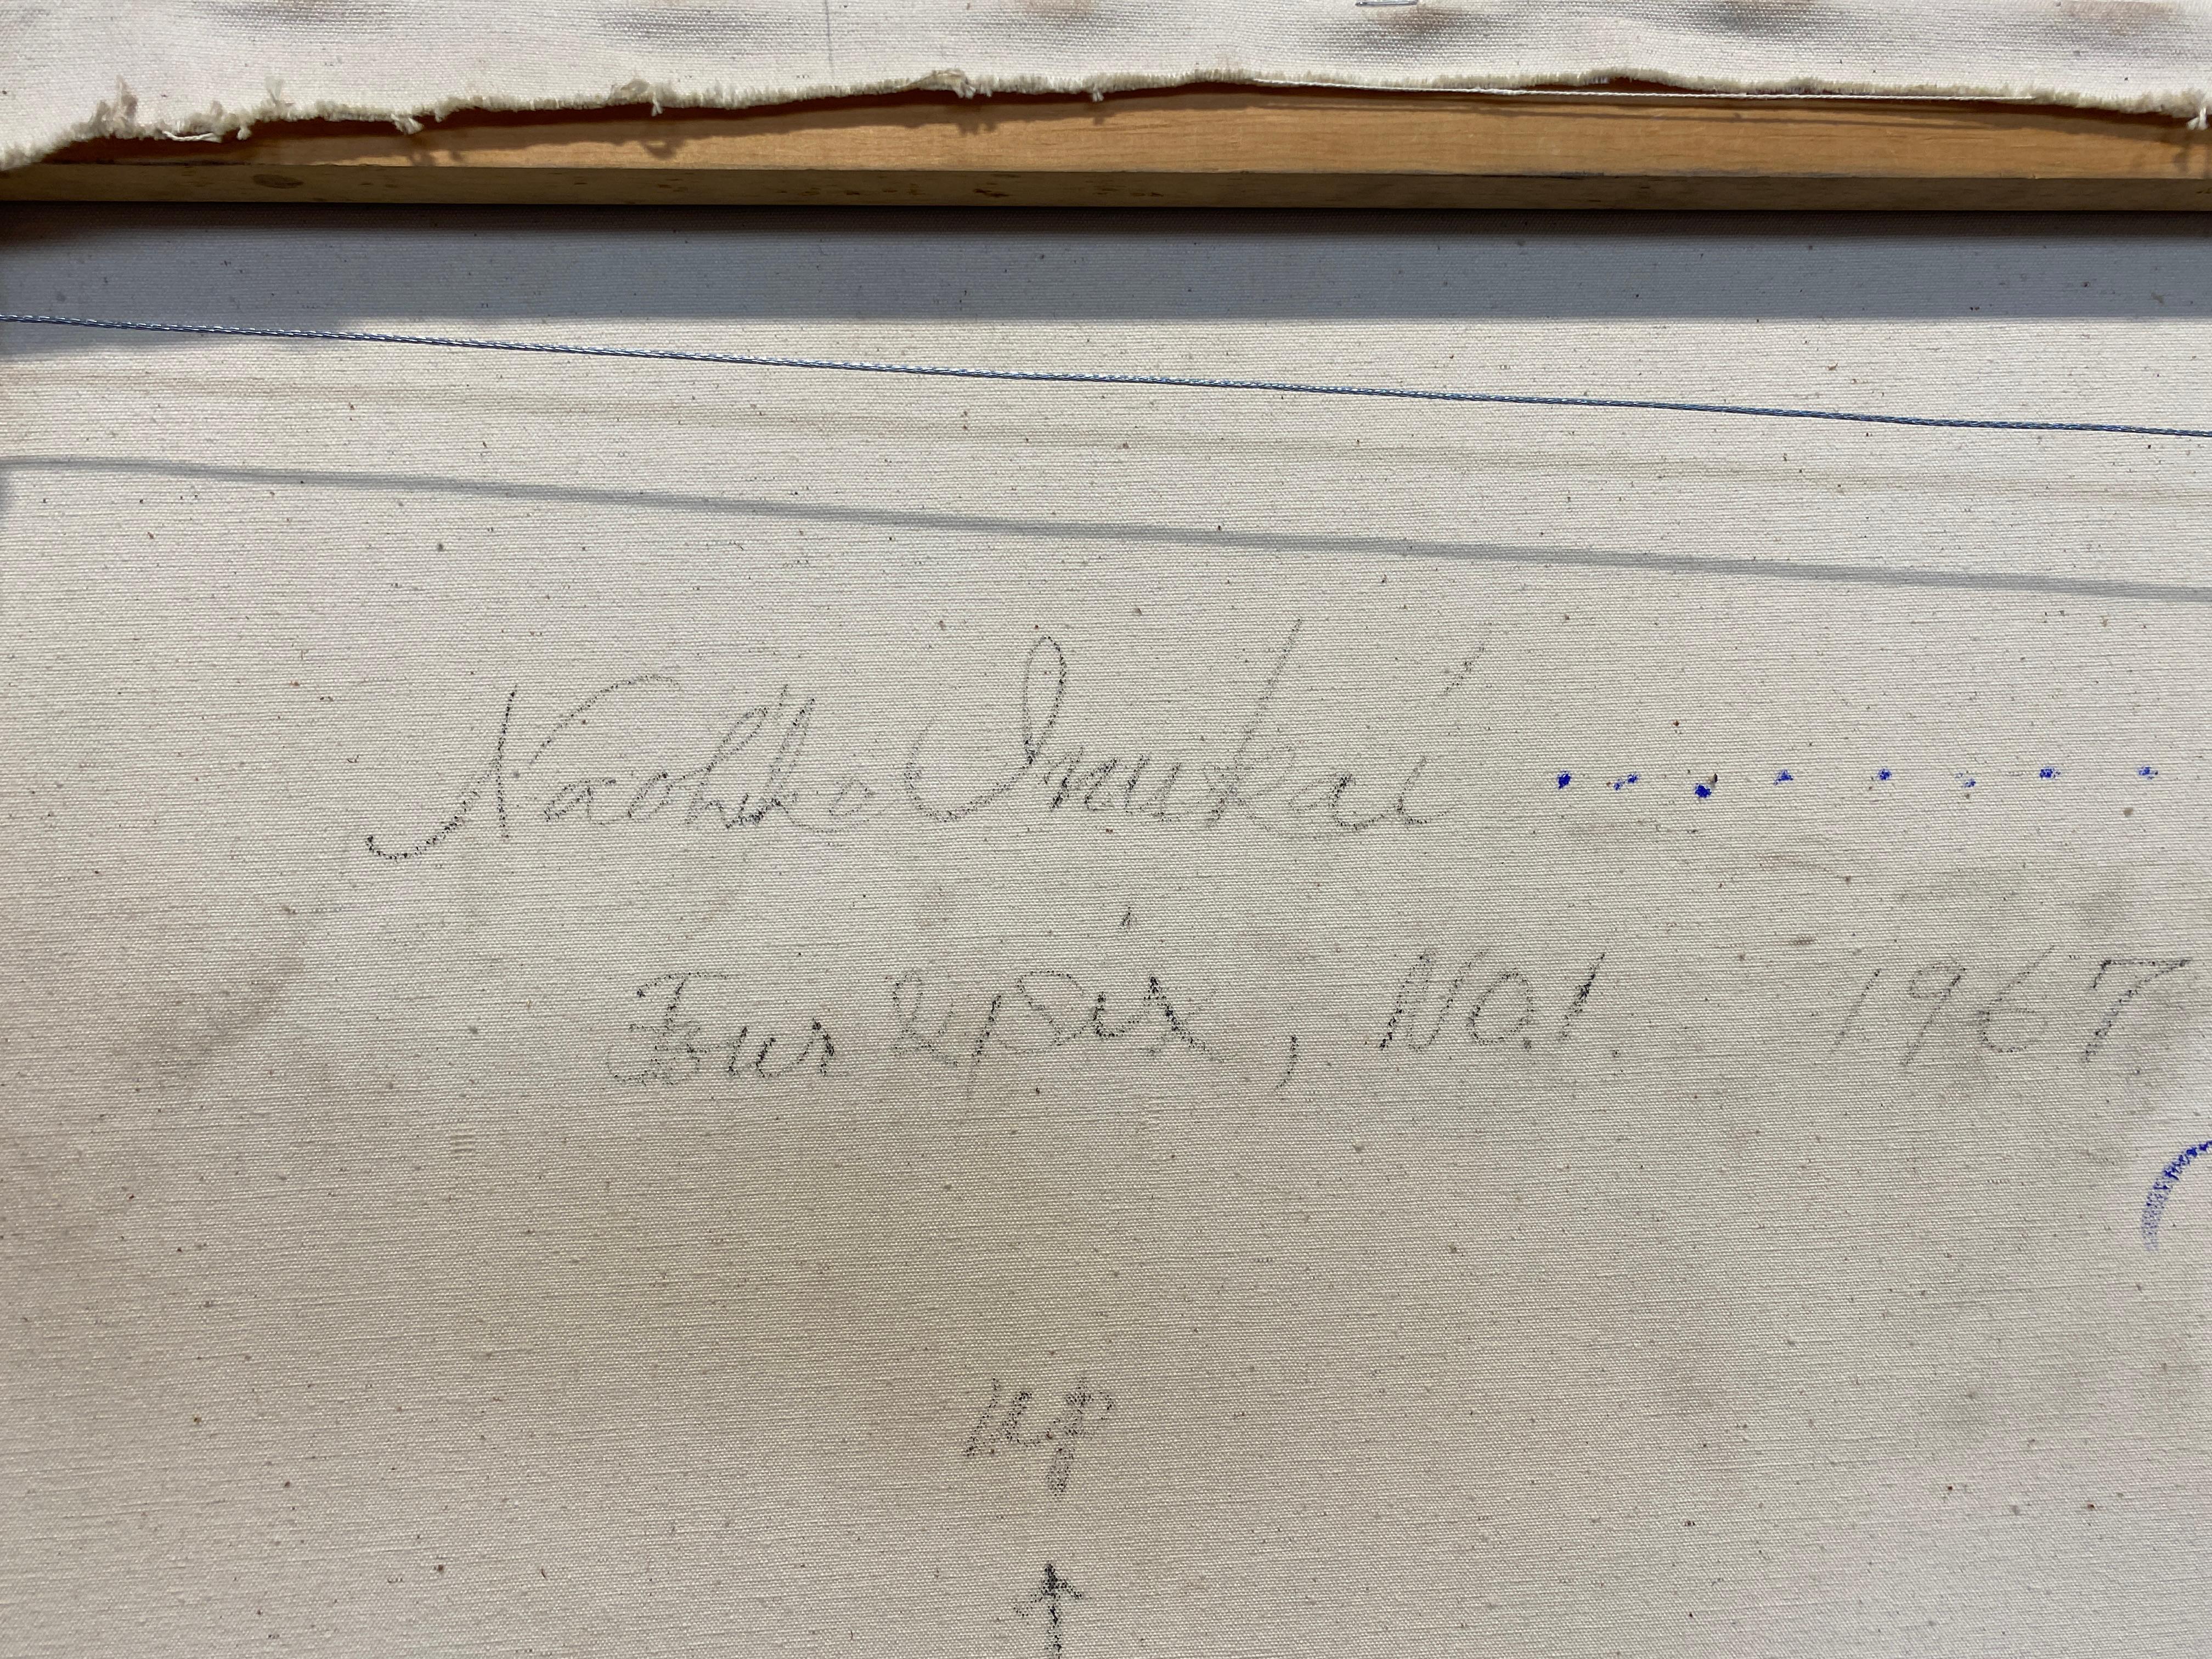 Naohiko Inukai
Four & Six, NO.1. 1967
up